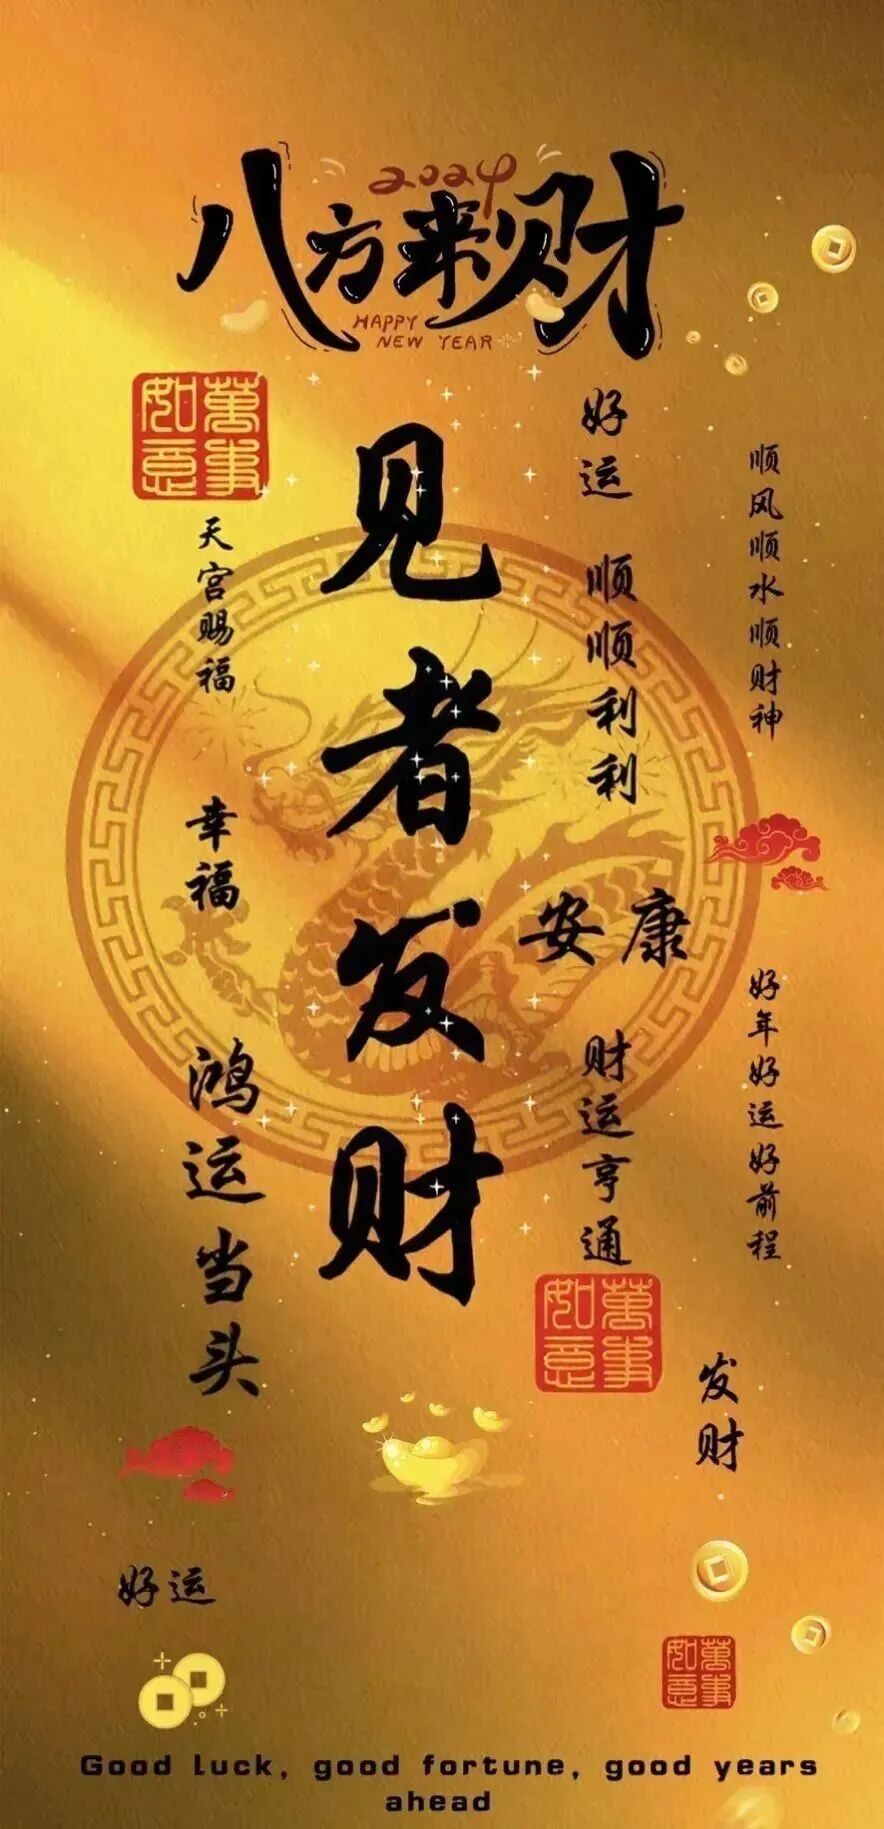 2024
八方来财
HAPPY
NEW YEAR
萬事如意
好运
顺风顺水顺财神
见者发财
天宫赐福
顺顺利利
幸福
安康
好年好运好前程
鸿运当头
财运亨通
萬事如意
发财
好运
萬事如意
Good luck, good fortune, good years
ahead